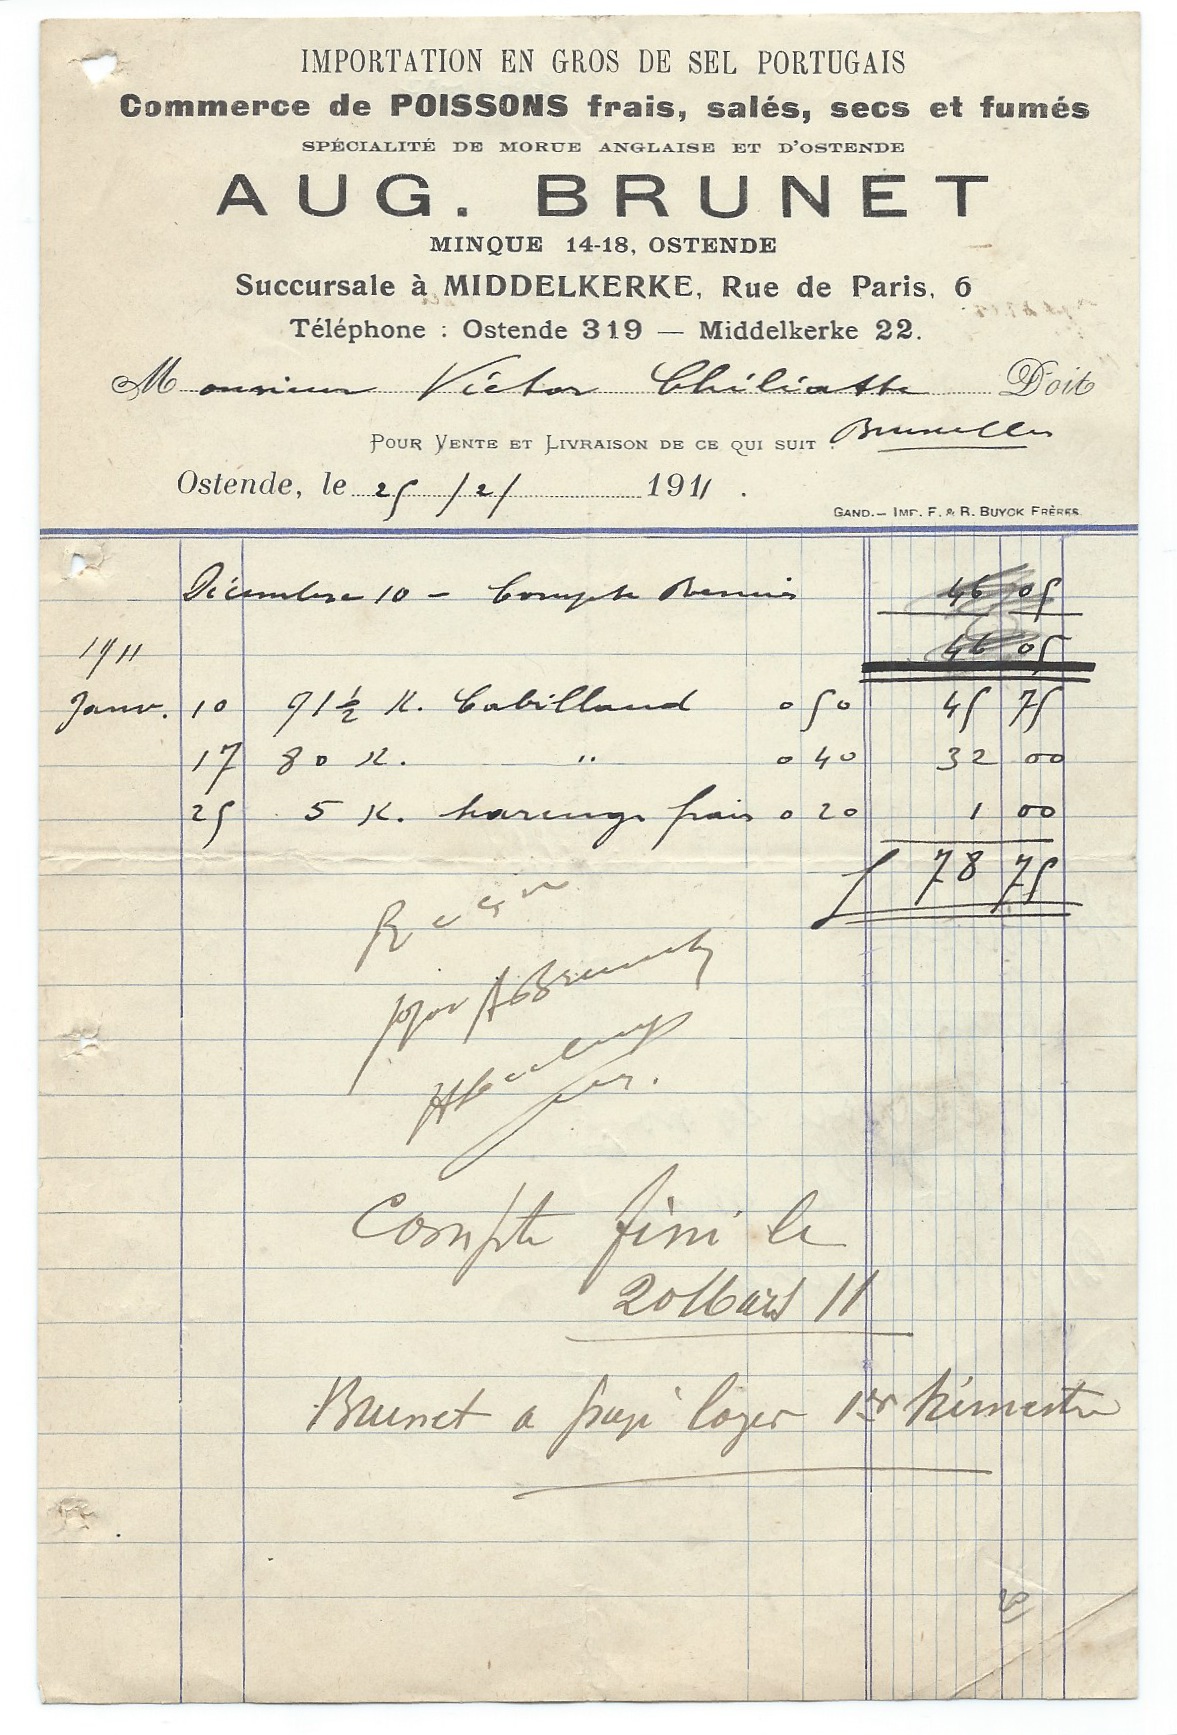 IMPORTATION EN GROS DE SEL PORTUGAIS
Commerce de POISSONS frais, salés, secs et fumés
SPÉCIALITÉ DE MORUE ANGLAISE ET D'OSTENDE
AUG. BRUNET
MINQUE 14-18, OSTENDE
Succursale à MIDDELKERKE, Rue de Paris, 6
Téléphone : Ostende 319 — Middelkerke 22.
Monsieur Victor Doit
POUR VENTE ET LIVRAISON DE CE QUI SUIT Bruxelles
Ostende, le 25/2/ 1911.
GAND.— IMP. F. & R. BUYCK FRÈRES.
Décembre 10 - Compte 46 05
1911 46 05
Janv. 10 91 ½ K. Cabilland 0 50 45 75
17 80 K. " 0 40 32 00
25 5 K. harengs frais 0 20 1 00
f 78 75
Reçu
pour A Brunet
Compte fini le
20 Mars 11
Brunet a payé loyer 1er trimestre